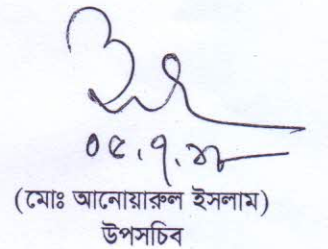 ০৫.৭.
(মোঃ আনোয়ারুল ইসলাম)
উপসচিব